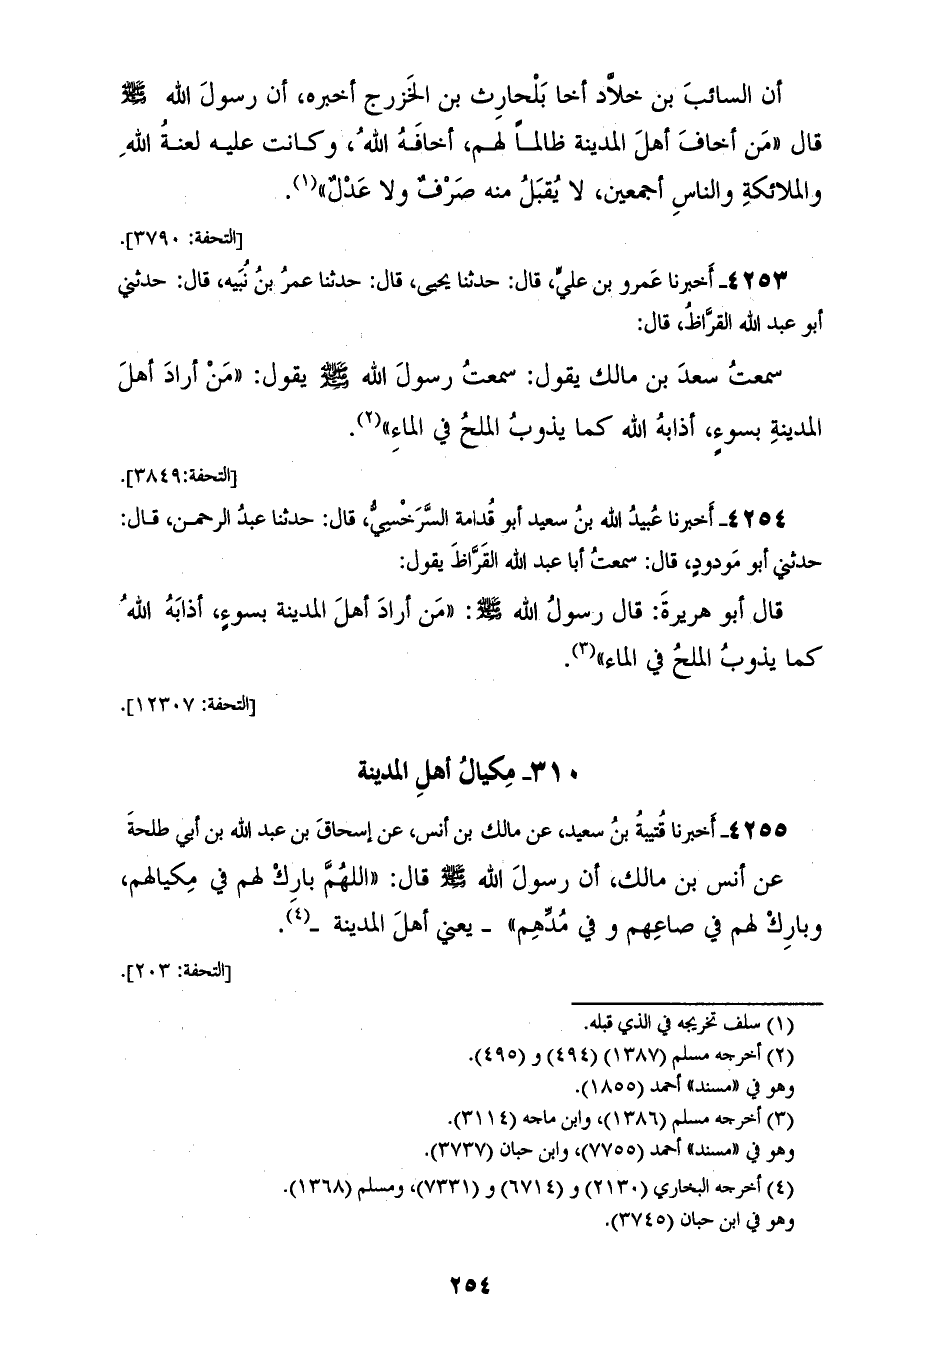 أن السائبَ بن خلاَّد أخا بَلْحارِث بن الخَزرج أخبره، أن رسولَ الله ﷺ
قال «مَن أخافَ أهلَ المدينة ظالمـاً لهـم، أخافَـهُ اللهُ، وكـانت عليـه لعنـةُ اللهِ
والملائكةِ والناسِ أجمعين، لا يُقبَلُ منه صَرْفٌ ولا عَدْلٌ»(١).
[التحفة: ٣٧٩٠].
٤٢٥٣ـ أَخبرنا عَمرو بن عليٍّ، قال: حدثنا يحيى، قال: حدثنا عمرُ بنُ نُبَيه، قال: حدثني
أبو عبد الله القرَّاظُ، قال:
سمعتُ سعدَ بن مالك يقول: سمعتُ رسولَ الله ﷺ يقول: «مَنْ أرادَ أهلَ
المدينةِ بسوءٍ، أذابهُ الله كما يذوبُ الملحُ في الماءِ»(٢).
[التحفة:٣٨٤٩].
٤٢٥٤ـ أَخبرنا عُبيدُ الله بنُ سعيد أبو قُدامة السَّرَخْسِيُّ، قال: حدثنا عبدُ الرحمـن، قـال:
حدثني أبو مَودودٍ، قال: سمعتُ أبا عبد الله القَرَّاظَ يقول:
قال أبو هريرةَ: قال رسولُ الله ﷺ: «مَن أرادَ أهلَ المدينة بسوءٍ، أذابَهُ اللهُ
كما يذوبُ الملحُ في الماء»(٣).
[التحفة: ١٢٣٠٧].
٣١٠ـ مِكيالُ أهلِ المدينة
٤٢٥٥ـ أَخبرنا قُتيبةُ بنُ سعيد، عن مالك بن أنس، عن إسحاقَ بن عبد الله بن أبي طلحةَ
عن أنس بن مالك، أن رسولَ الله ﷺ قال: «اللهُمَّ بارِكْ لهم في مِكيالهم،
وبارِكْ لهم في صاعِهم و في مُدِّهِم» ـ يعني أهلَ المدينة ـ(٤).
[التحفة: ٢٠٣].
(١) سلف تخريجه في الذي قبله.
(٢) أخرجه مسلم (١٣٨٧) (٤٩٤) و (٤٩٥).
وهو في «مسند» أحمد (١٨٥٥).
(٣) أخرجه مسلم (١٣٨٦)، وابن ماجه (٣١١٤).
وهو في «مسند» أحمد (٧٧٥٥)، وابن حبان (٣٧٣٧).
(٤) أخرجه البخاري (٢١٣٠) و (٦٧١٤) و (٧٣٣١)، ومسلم (١٣٦٨).
وهو في ابن حبان (٣٧٤٥).
٢٥٤